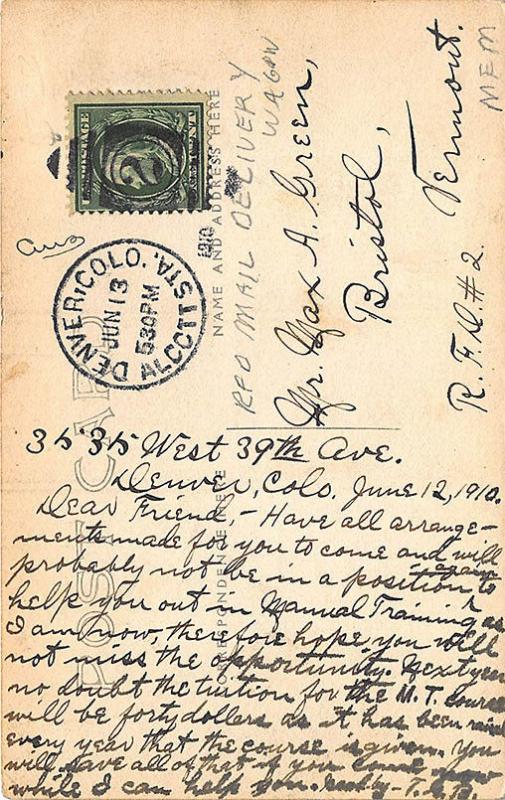 POST CARD
CORRESPONDENCE HERE
NAME AND ADDRESS HERE
DENVER, COLO. ALCOTT STA.
JUN 13
530PM
1910
2
RFD MAIL DELIVERY
WAGON
MEM
Mr. Max A. Green,
Bristol,
Vermont.
R.F.D. #2.
3535 West 39th Ave.
Denver, Colo. June 12, 1910.
Dear Friend, - Have all arrange-
ments made for you to come and will
probably not be in a position again to
help you out in Manual Training as
I am now, therefore hope you will
not miss the opportunity. Next year
no doubt the tuition for the M.T. Course
will be forty dollars as it has been raised
every year that the course is given. You
will save all of that if you come now
while I can help you. T.G.B.